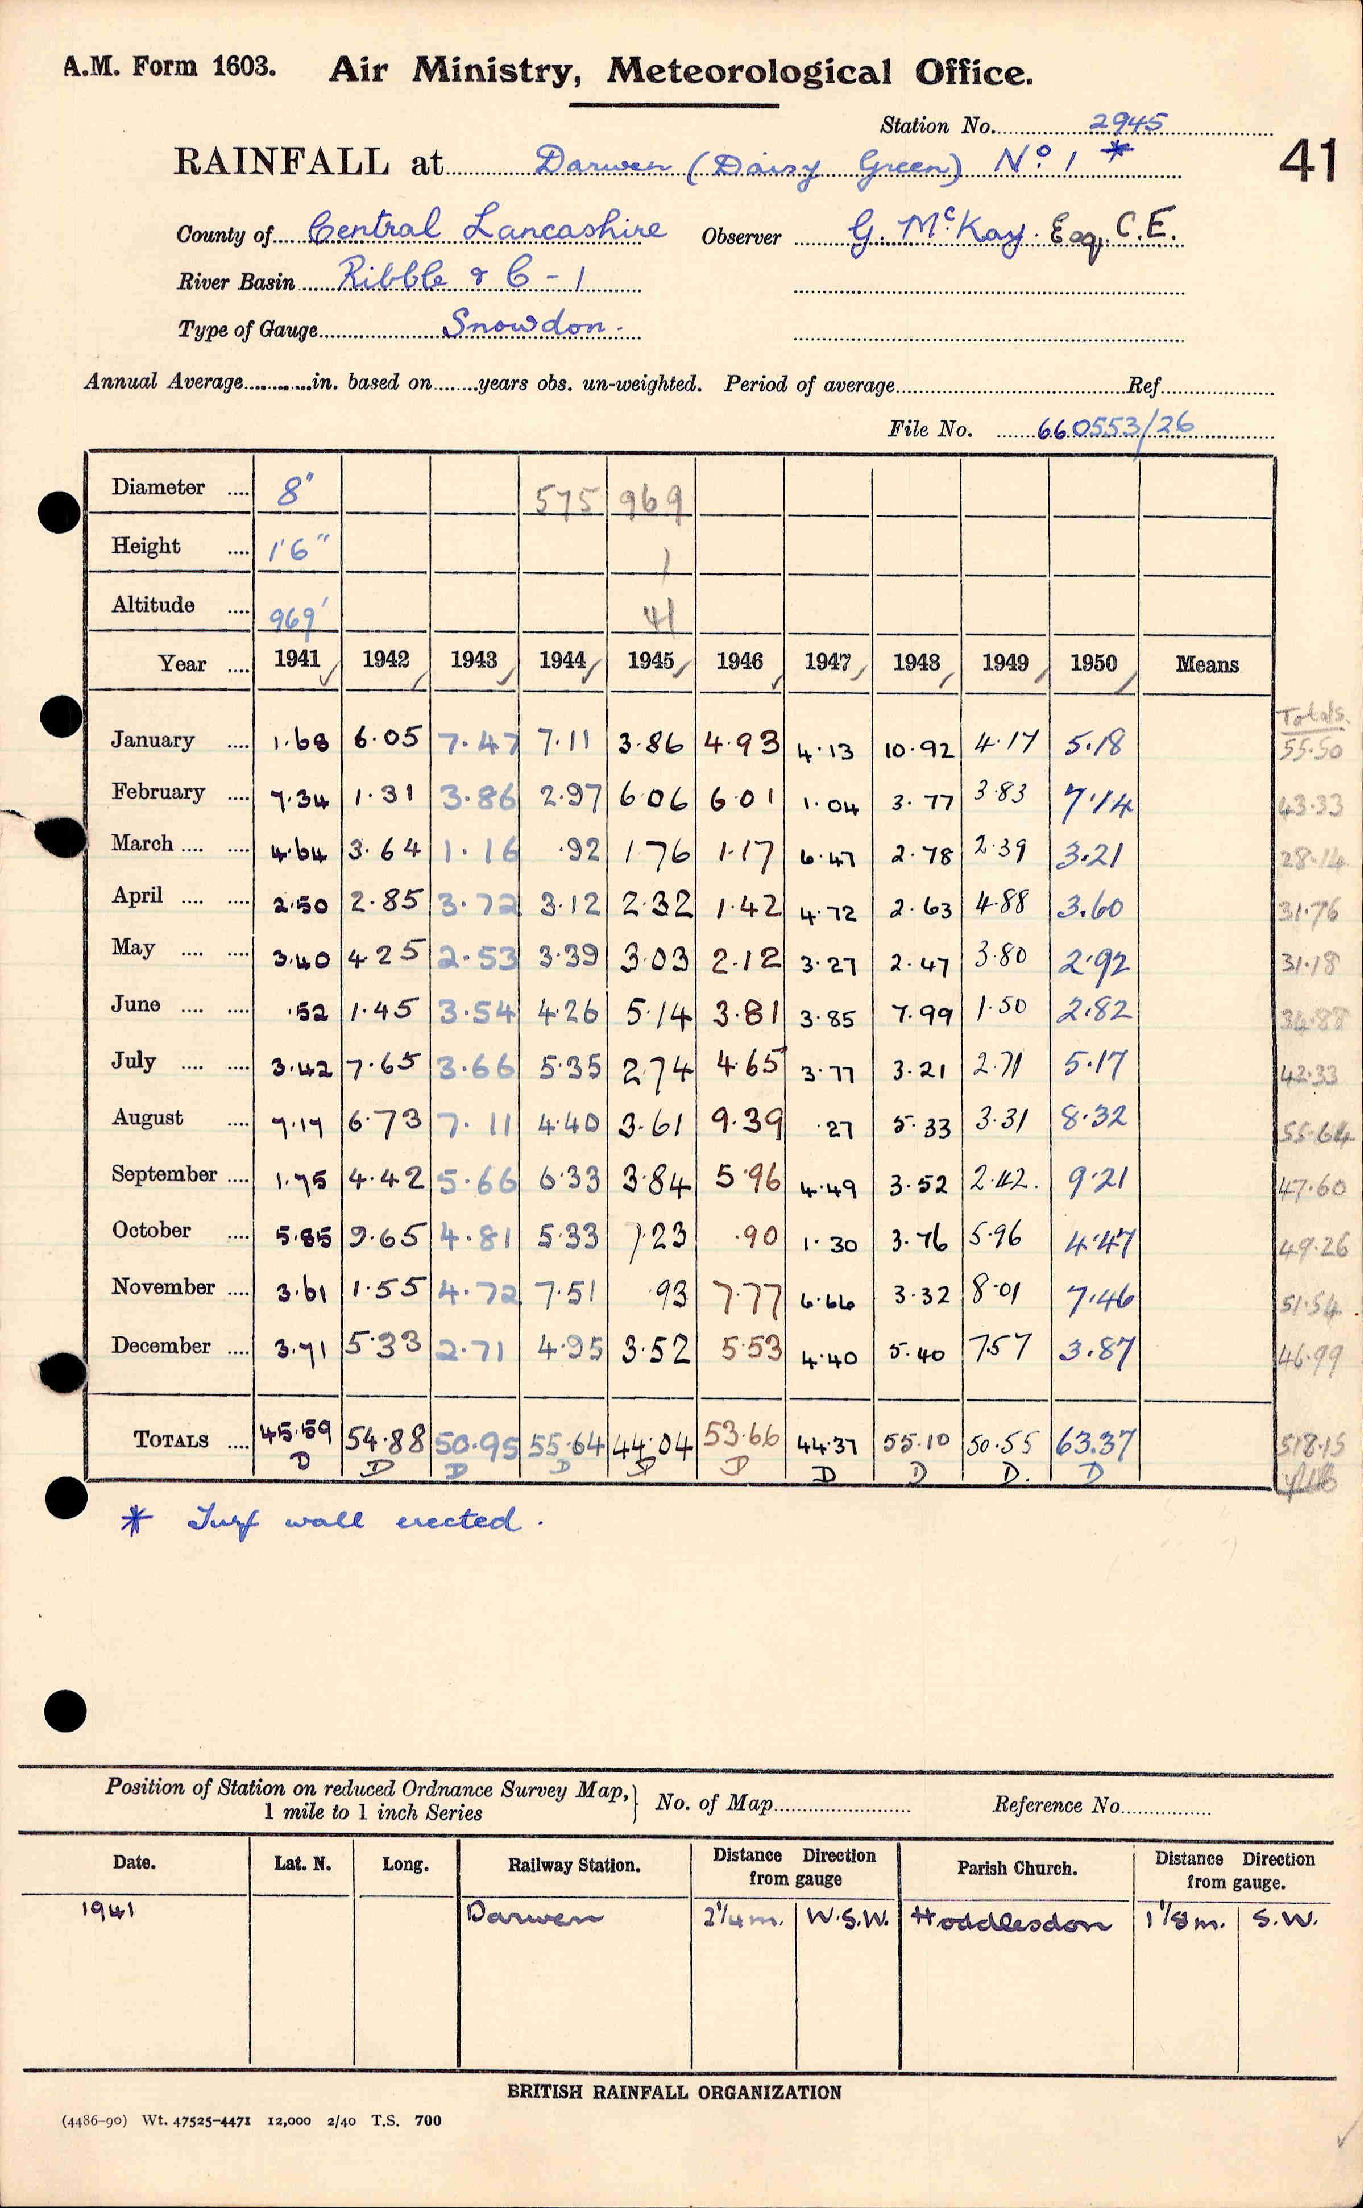 A.M. Form 1603. Air Ministry, Meteorological Office.
Station No. 2945
41
RAINFALL at Darwen (Daisy Green) No. 1 *
County of Central Lancashire Observer G. McKay. Esq, C.E.
River Basin Ribble & C - 1
Type of Gauge Snowdon.
Annual Average in. based on years obs. un-weighted. Period of average Ref.
File No. 660553/26
Diameter 8" 575 969
Height 1'6" 1
Altitude 969' 41
Year 1941 1942 1943 1944 1945 1946 1947 1948 1949 1950 Means Totals.
January 1.68 6.05 7.47 7.11 3.86 4.93 4.13 10.92 4.17 5.18 55.50
February 7.34 1.31 3.86 2.97 6.06 6.01 1.04 3.77 3.83 7.14 43.33
March 4.64 3.64 1.16 .92 1.76 1.17 6.47 2.78 2.39 3.21 28.14
April 2.50 2.85 3.72 3.12 2.32 1.42 4.72 2.63 4.88 3.60 31.76
May 3.40 4.25 2.53 3.39 3.03 2.12 3.27 2.47 3.80 2.92 31.18
June .52 1.45 3.54 4.26 5.14 3.81 3.85 7.99 1.50 2.82 34.88
July 3.42 7.65 3.66 5.35 2.74 4.65 3.77 3.21 2.71 5.17 42.33
August 7.17 6.73 7.11 4.40 3.61 9.39 .27 5.33 3.31 8.32 55.64
September 1.75 4.42 5.66 6.33 3.84 5.96 4.49 3.52 2.42. 9.21 47.60
October 5.85 9.65 4.81 5.33 7.23 .90 1.30 3.76 5.96 4.47 49.26
November 3.61 1.55 4.72 7.51 .93 7.77 6.66 3.32 8.01 7.46 51.54
December 3.71 5.33 2.71 4.95 3.52 5.53 4.40 5.40 7.57 3.87 46.99
TOTALS 45.59 54.88 50.95 55.64 44.04 53.66 44.37 55.10 50.55 63.37 518.15
D D D D D D D D D. D
* Turf wall erected.
Position of Station on reduced Ordnance Survey Map, 1 mile to 1 inch Series No. of Map Reference No.
Date. Lat. N. Long. Railway Station. Distance Direction from gauge Parish Church. Distance Direction from gauge.
1941 Darwen 2 1/4 m. W.S.W. Hoddlesdon 1 1/8 m. S.W.
BRITISH RAINFALL ORGANIZATION
(4486-90) Wt. 47525-4471 12,000 2/40 T.S. 700